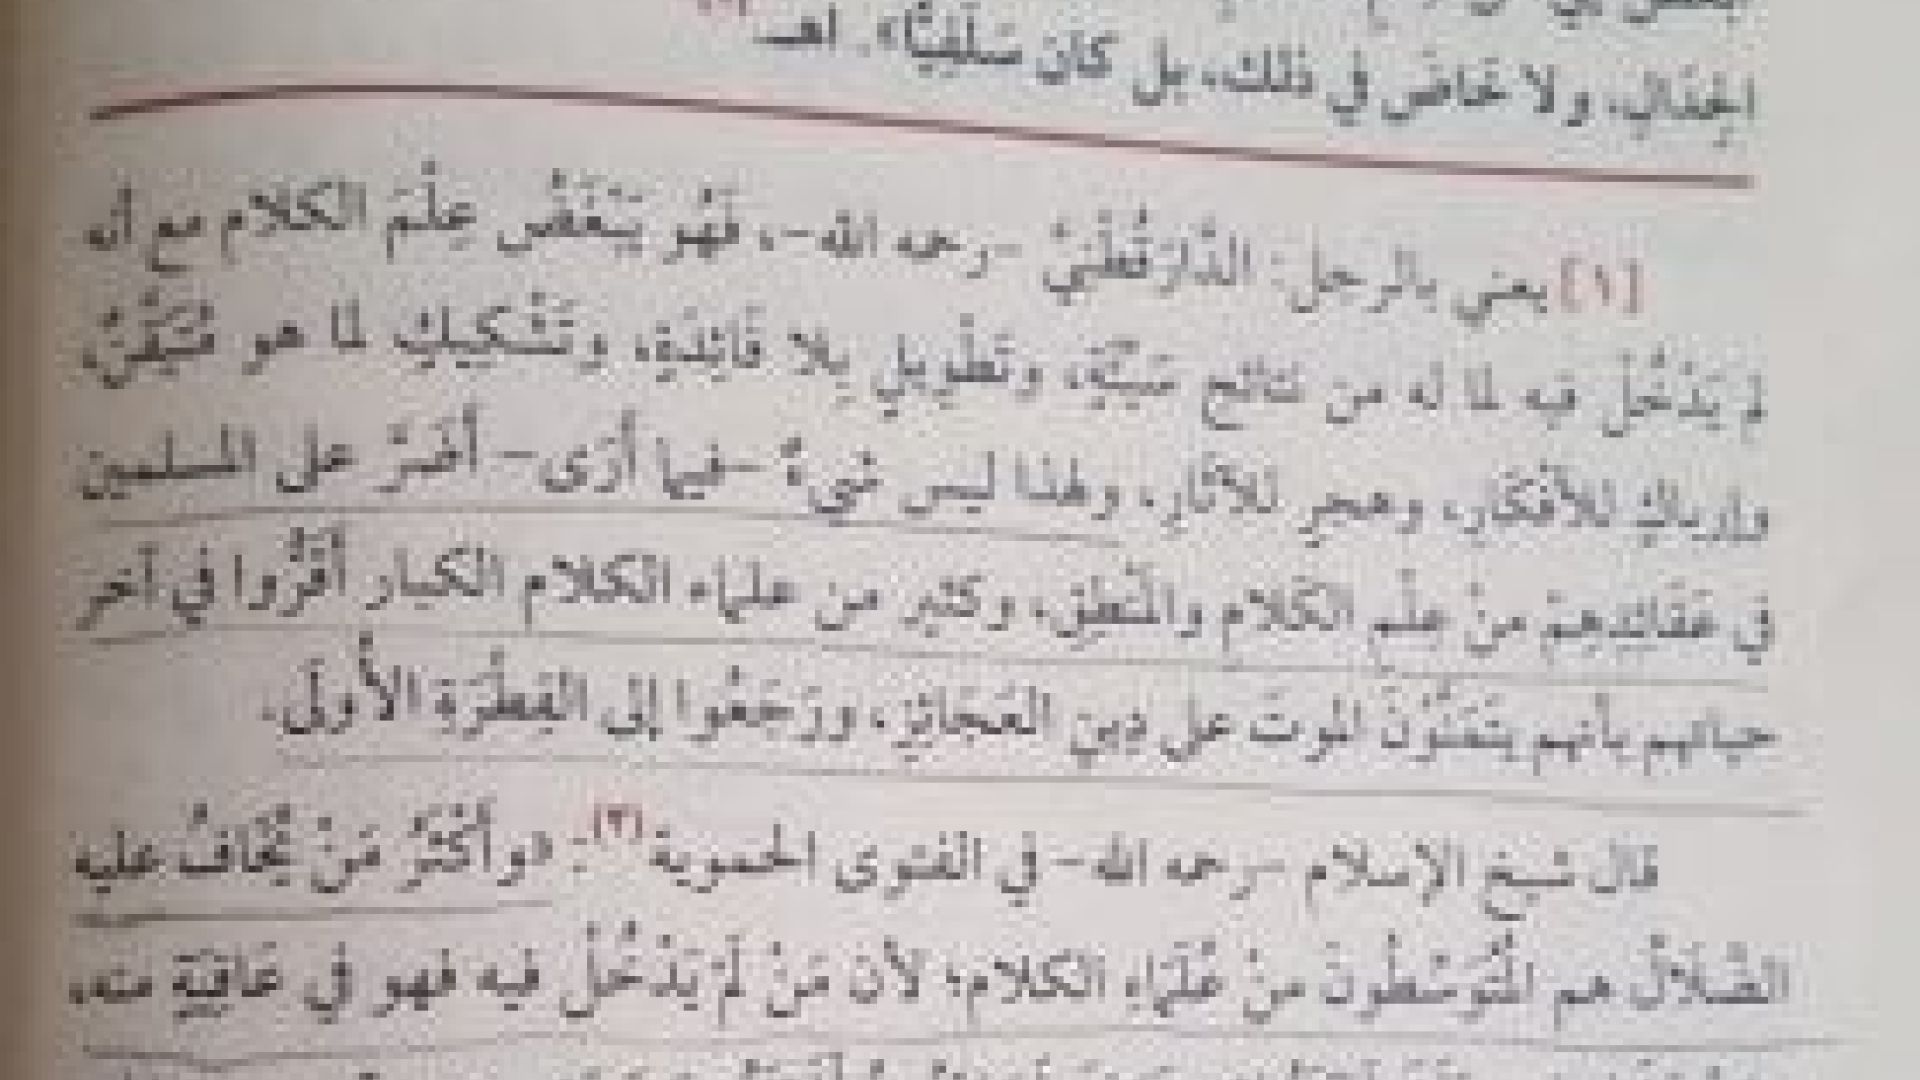 الجدال، ولا خاض في ذلك، بل كان سلفيًّا». اهـ
[١] يعني بالرجل: الدَّارَقُطْنيَّ -رحمه الله-، فَهُو يَبْغَضُ عِلْمَ الكلام مع أنه
لم يَدْخُلْ فيه لما له من نتائج سَيِّئَةٍ، وتَطْوِيلٍ بِلا فَائِدَةٍ، وتَشْكِيكٍ لما هو مُتَيَقَّنٌ،
وإرباكٍ للأَفْكَارِ، وهجرٍ للآثَارِ، ولهذا ليس شيءٌ -فيما أَرَى- أَضَرَّ على المسلمين
في عَقَائِدِهِمْ مِنْ عِلْمِ الكَلام والمَنْطِقِ، وكثير من علماء الكلام الكبار أَقَرُّوا في آخر
حياتهم بأنهم يَتَمَنَّوْنَ الموتَ على دِينِ العَجَائِزِ، ورَجَعُوا إلى الفِطْرَةِ الأُولَى.
قال شيخ الإسلام -رحمه الله- في الفتوى الحموية(٢): «وأَكْثَرُ مَنْ يُخَافُ عليه
الضَّلَالُ هم المُتَوَسِّطُونَ مِنْ عُلَمَاءِ الكلام؛ لأن مَنْ لَمْ يَدْخُلْ فيه فهو في عَافِيَةٍ منه،